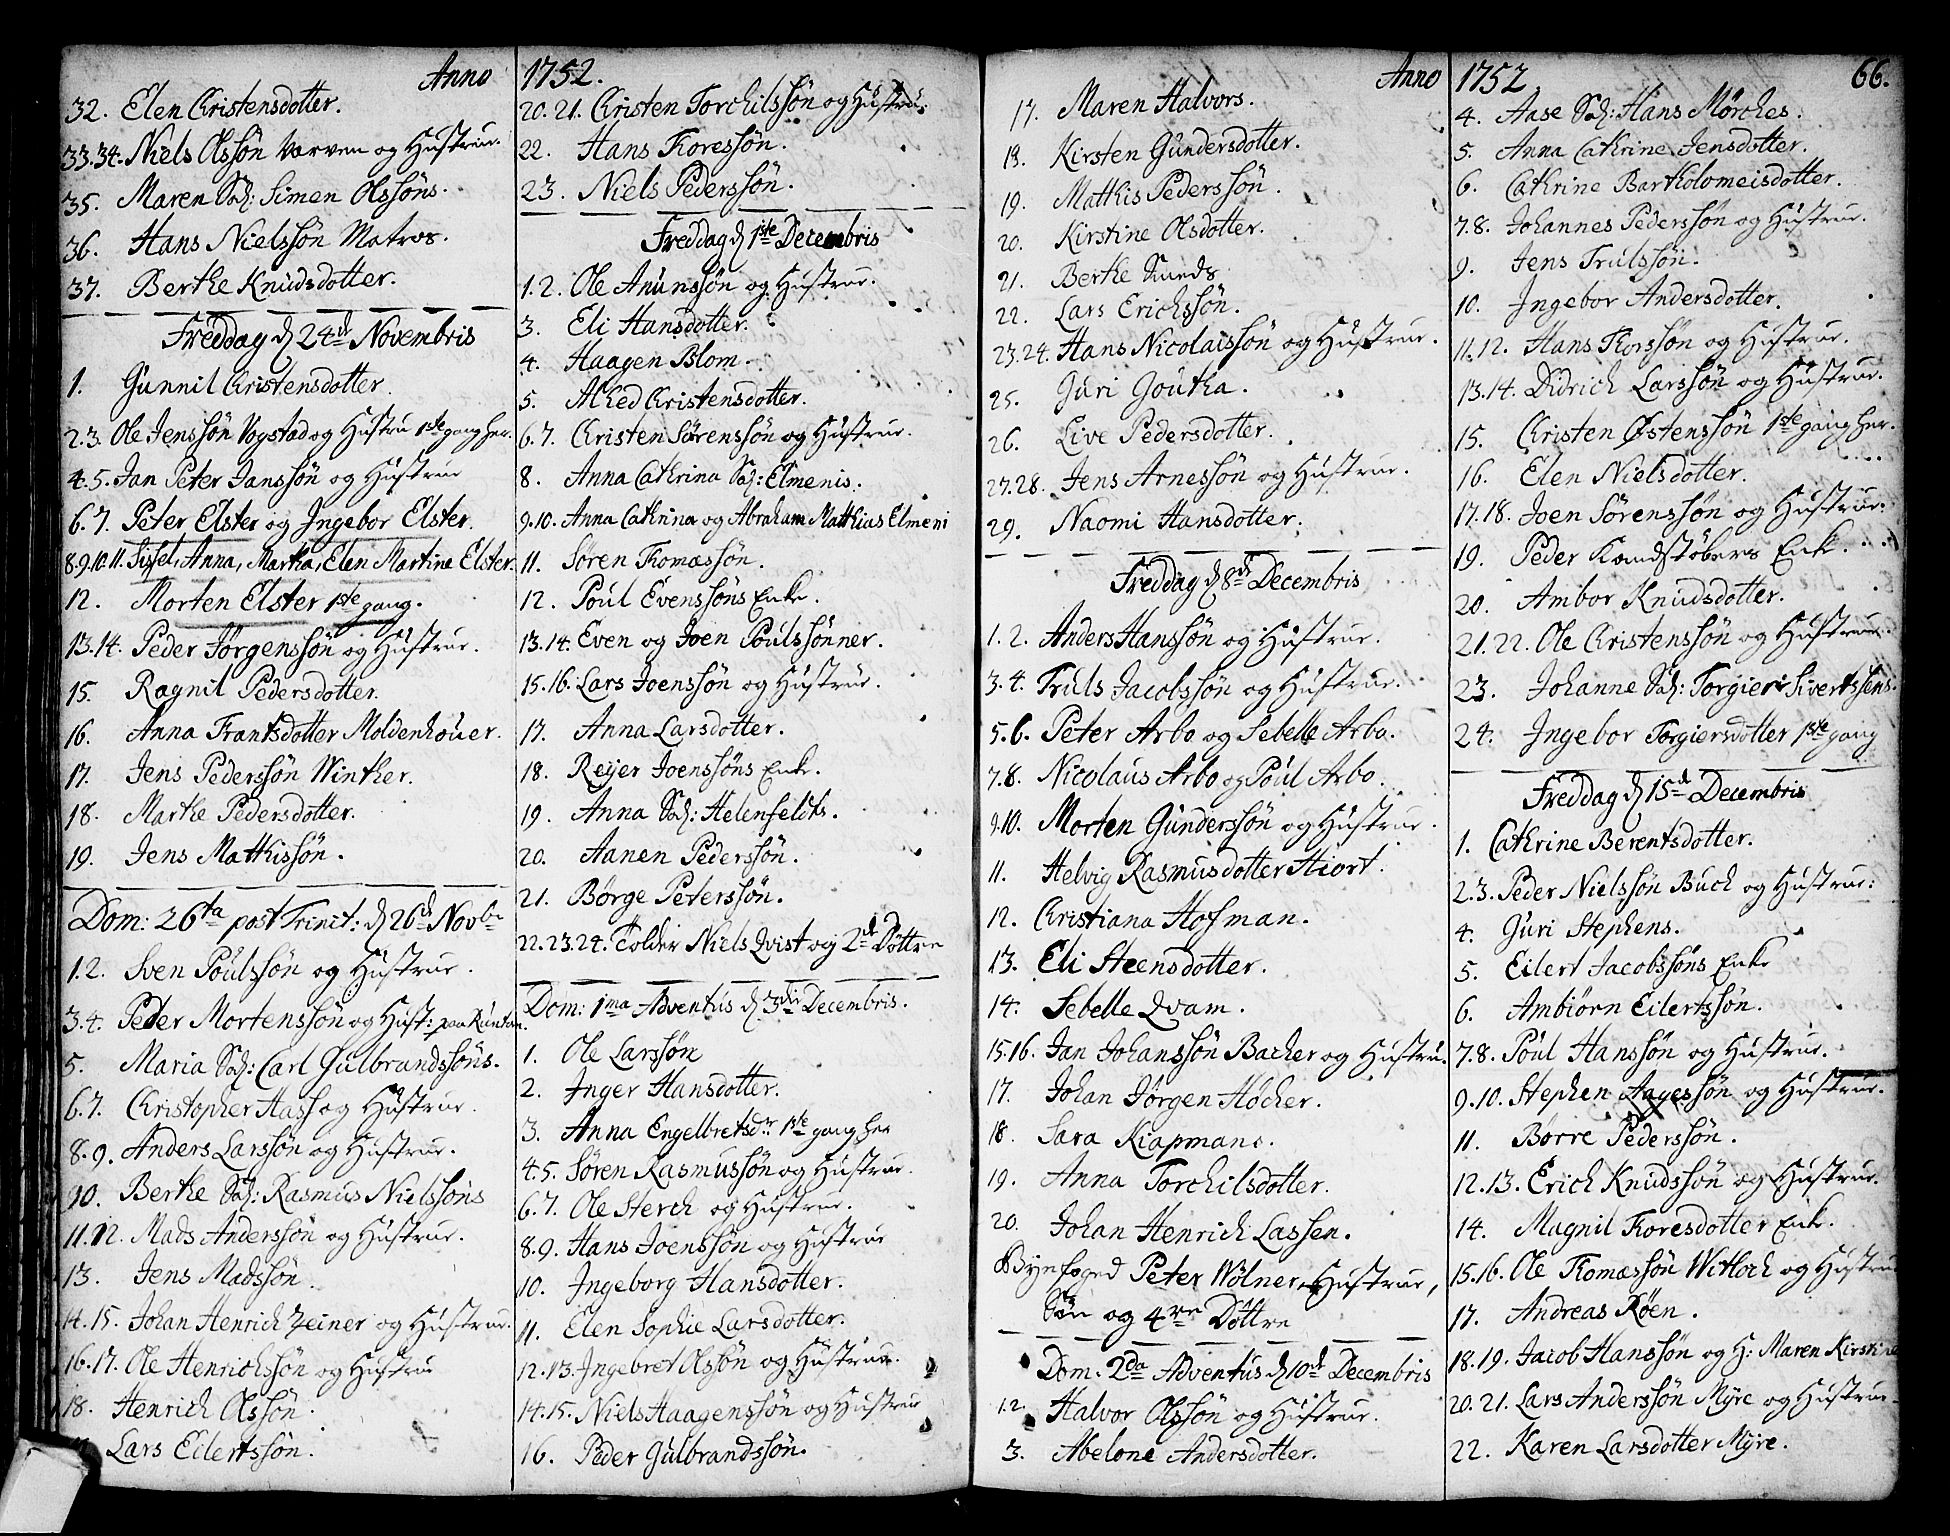 Anno
32. Elen Christensdotter.
33.34. Niels Olssön Verven og Hustrue.
35. Maren Sal: Simen Olssöns.
36. Hans Nielssön Matros.
37. Berthe Knudsdotter.
Freddag d 24de Novembris
1. Gunnil Christensdotter.
2.3. Ole Jenssön Vogstad og Hustru 1ste gang her.
4.5. Jan Peter Janssön og Hustrue
6.7. Peter Elster og Ingebor Elster.
8.9.10.11. Sissel, Anna, Martha, Elen Martine Elster.
12. Morten Elster 1ste gang.
13.14. Peder Jörgenssön og Hustrue.
15. Ragnil Pedersdotter.
16. Anna Frantsdotter Moldenhouer.
17. Jens Pederssön Winther.
18. Marthe Pedersdotter.
19. Jens Matthissön.
Dom: 26ta post Trinit: d 26de Novbr
1.2. Sven Poulssön og Hustrue.
3.4. Peder Mortenssön og Hust: paa Runtan.
5. Maria Sal: Carl Gulbrandssöns.
6.7. Christopher Hass og Hustrue.
8.9. Anders Larssön og Hustrue.
10. Berthe Sal: Rasmus Nielssöns
11.12. Mads Anderssön og Hustrue.
13. Jens Madssön.
14.15. Johan Henrich Zeiner og Hustrue.
16.17. Ole Henrichssön og Hustrue
18. Henrich Olssön.
Lars Eilertssön.
1752.
20.21. Christen Torchilssön og Hustrue.
22. Hans Toressön.
23. Niels Pederssön.
Freddag d 1ste Decembris
1.2. Ole Anunssön og Hustrue.
3. Eli Hansdotter.
4. Haagen Blom.
5. Alhed Christensdotter.
6.7. Christen Sörenssön og Hustrue.
8. Anna Cathrina Sal: Elmenis.
9.10. Anna Cathrina og Abraham Matthias Elmeni
11. Sören Thomæssön.
12. Poul Evenssöns Enke.
13.14. Even og Joen Poulssönner.
15.16. Lars Joenssön og Hustrue.
17. Anna Larsdotter.
18. Reyer Joenssöns Enke.
19. Anna Sal: Helenfeldts.
20. Aanen Pederssön.
21. Börge Peterssön.
22.23.24. Tolder Niels Qvist og 2de Döttre
Dom: 1ma Adventus d 3die Decembris.
1. Ole Larssön
2. Inger Hansdotter.
3. Anna Engelbretsdr 1ste gang her
4.5. Sören Rasmussön og Hustrue.
6.7. Ole Sterch og Hustrue.
8.9. Hans Joenssön og Hustrue
10. Ingeborg Hansdotter.
11. Elen Sophie Larsdotter.
12.13. Ingebret Olssön og Hustrue.
14.15. Niels Haagenssön og Hustrue
16. Peder Gulbrandssön.
Anno
17. Maren Halvors.
18. Kirsten Gundersdotter.
19. Matthis Pederssön.
20. Kirstine Olsdotter.
21. Berthe Smeds
22. Lars Erichssön.
23.24. Hans Nicolaissön og Hustrue.
25. Guri Joutha.
26. Live Pedersdotter.
27.28. Jens Arnessön og Hustrue.
29. Naomi Hansdotter.
Freddag d 8de Decembris
1.2. Anders Hanssön og Hustrue.
3.4. Truls Jacobssön og Hustrue.
5.6. Peter Arbo og Sebelle Arbo.
7.8. Nicolaus Arbo og Poul Arbo.
9.10. Morten Gunderssön og Hustrue.
11. Helvig Rasmusdotter Hiort.
12. Christiana Hofman.
13. Eli Steensdotter.
14. Sebelle Qvam.
15.16. Jan Johanssön Bacher og Hustrue.
17. Johan Jörgen Höcher.
18. Sara Kiapmans.
19. Anna Torchilsdotter.
20. Johan Henrich Lassen.
Byefoged Peter Wölner, Hustrue,
Sön og 4re Döttre
Dom. 2da Adventus d 10de Decembris
1.2. Halvor Olssön og Hustrue.
3. Abelone Andersdotter.
1752
66.
4. Aase Sal: Hans Mörches.
5. Anna Cathrine Jensdotter.
6. Cathrine Bartholomeisdotter.
7.8. Johannes Pederssön og Hustrue.
9. Jens Trulssön.
10. Ingebor Andersdotter.
11.12. Hans Thorssön og Hustrue.
13.14. Didrich Larssön og Hustrue.
15. Christen Östenssön 1ste gang her.
16. Elen Nielsdotter.
17.18. Joen Sörenssön og Hustrue.
19. Peder Kandstöbers Enke.
20. Ambor Knudsdotter.
21.22. Ole Christenssön og Hustrue.
23. Johanne Sal: Torgier Sivertssens.
24. Ingebor Torgiersdotter 1ste gang
Freddag d 15de Decembris
1. Cathrine Berentsdotter.
2.3. Peder Nielssön Buch og Hustrue:
4. Guri Stephens.
5. Eilert Jacobssöns Enke
6. Ambiörn Eilertssön.
7.8. Poul Hanssön og Hustrue.
9.10. Stephen Aagessön og Hustrue.
11. Börre Pederssön.
12.13. Erich Knudssön og Hustrue.
14. Magnil Thoresdotter Enke.
15.16. Ole Thomæssön Witloch og Hustrue
17. Andreas Röen.
18.19. Jacob Hanssön og H: Maren Kirstine
20.21. Lars Anderssön Myre og Hustrue.
22. Karen Larsdotter Myre.